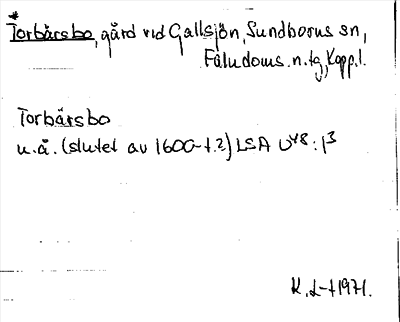 *
Torbårsbo, gård vid Gallsjön, Sundborns sn,
Faludoms. n. tg, Kopp.l.
Torbårsbo
u.å. (slutet av 1600-t.?) LSA U48: β
K. L-t 1971.